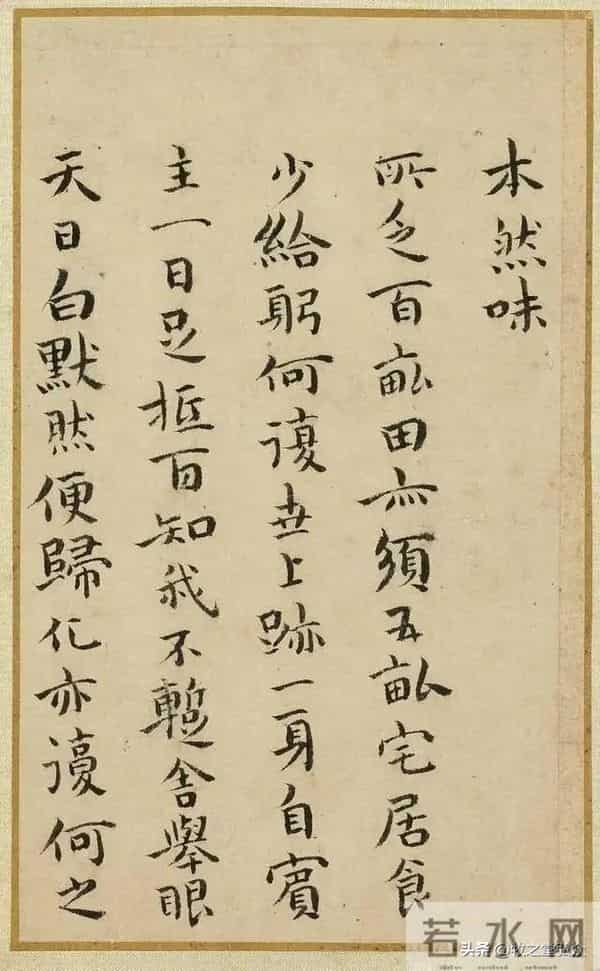 本然味
所乏百畝田亦須五畝宅居食
少給躬何復世上跡一身自賓
主一日足抵百知我不暫舍舉眼
天日白默然便歸化亦復何之
若水网
头条